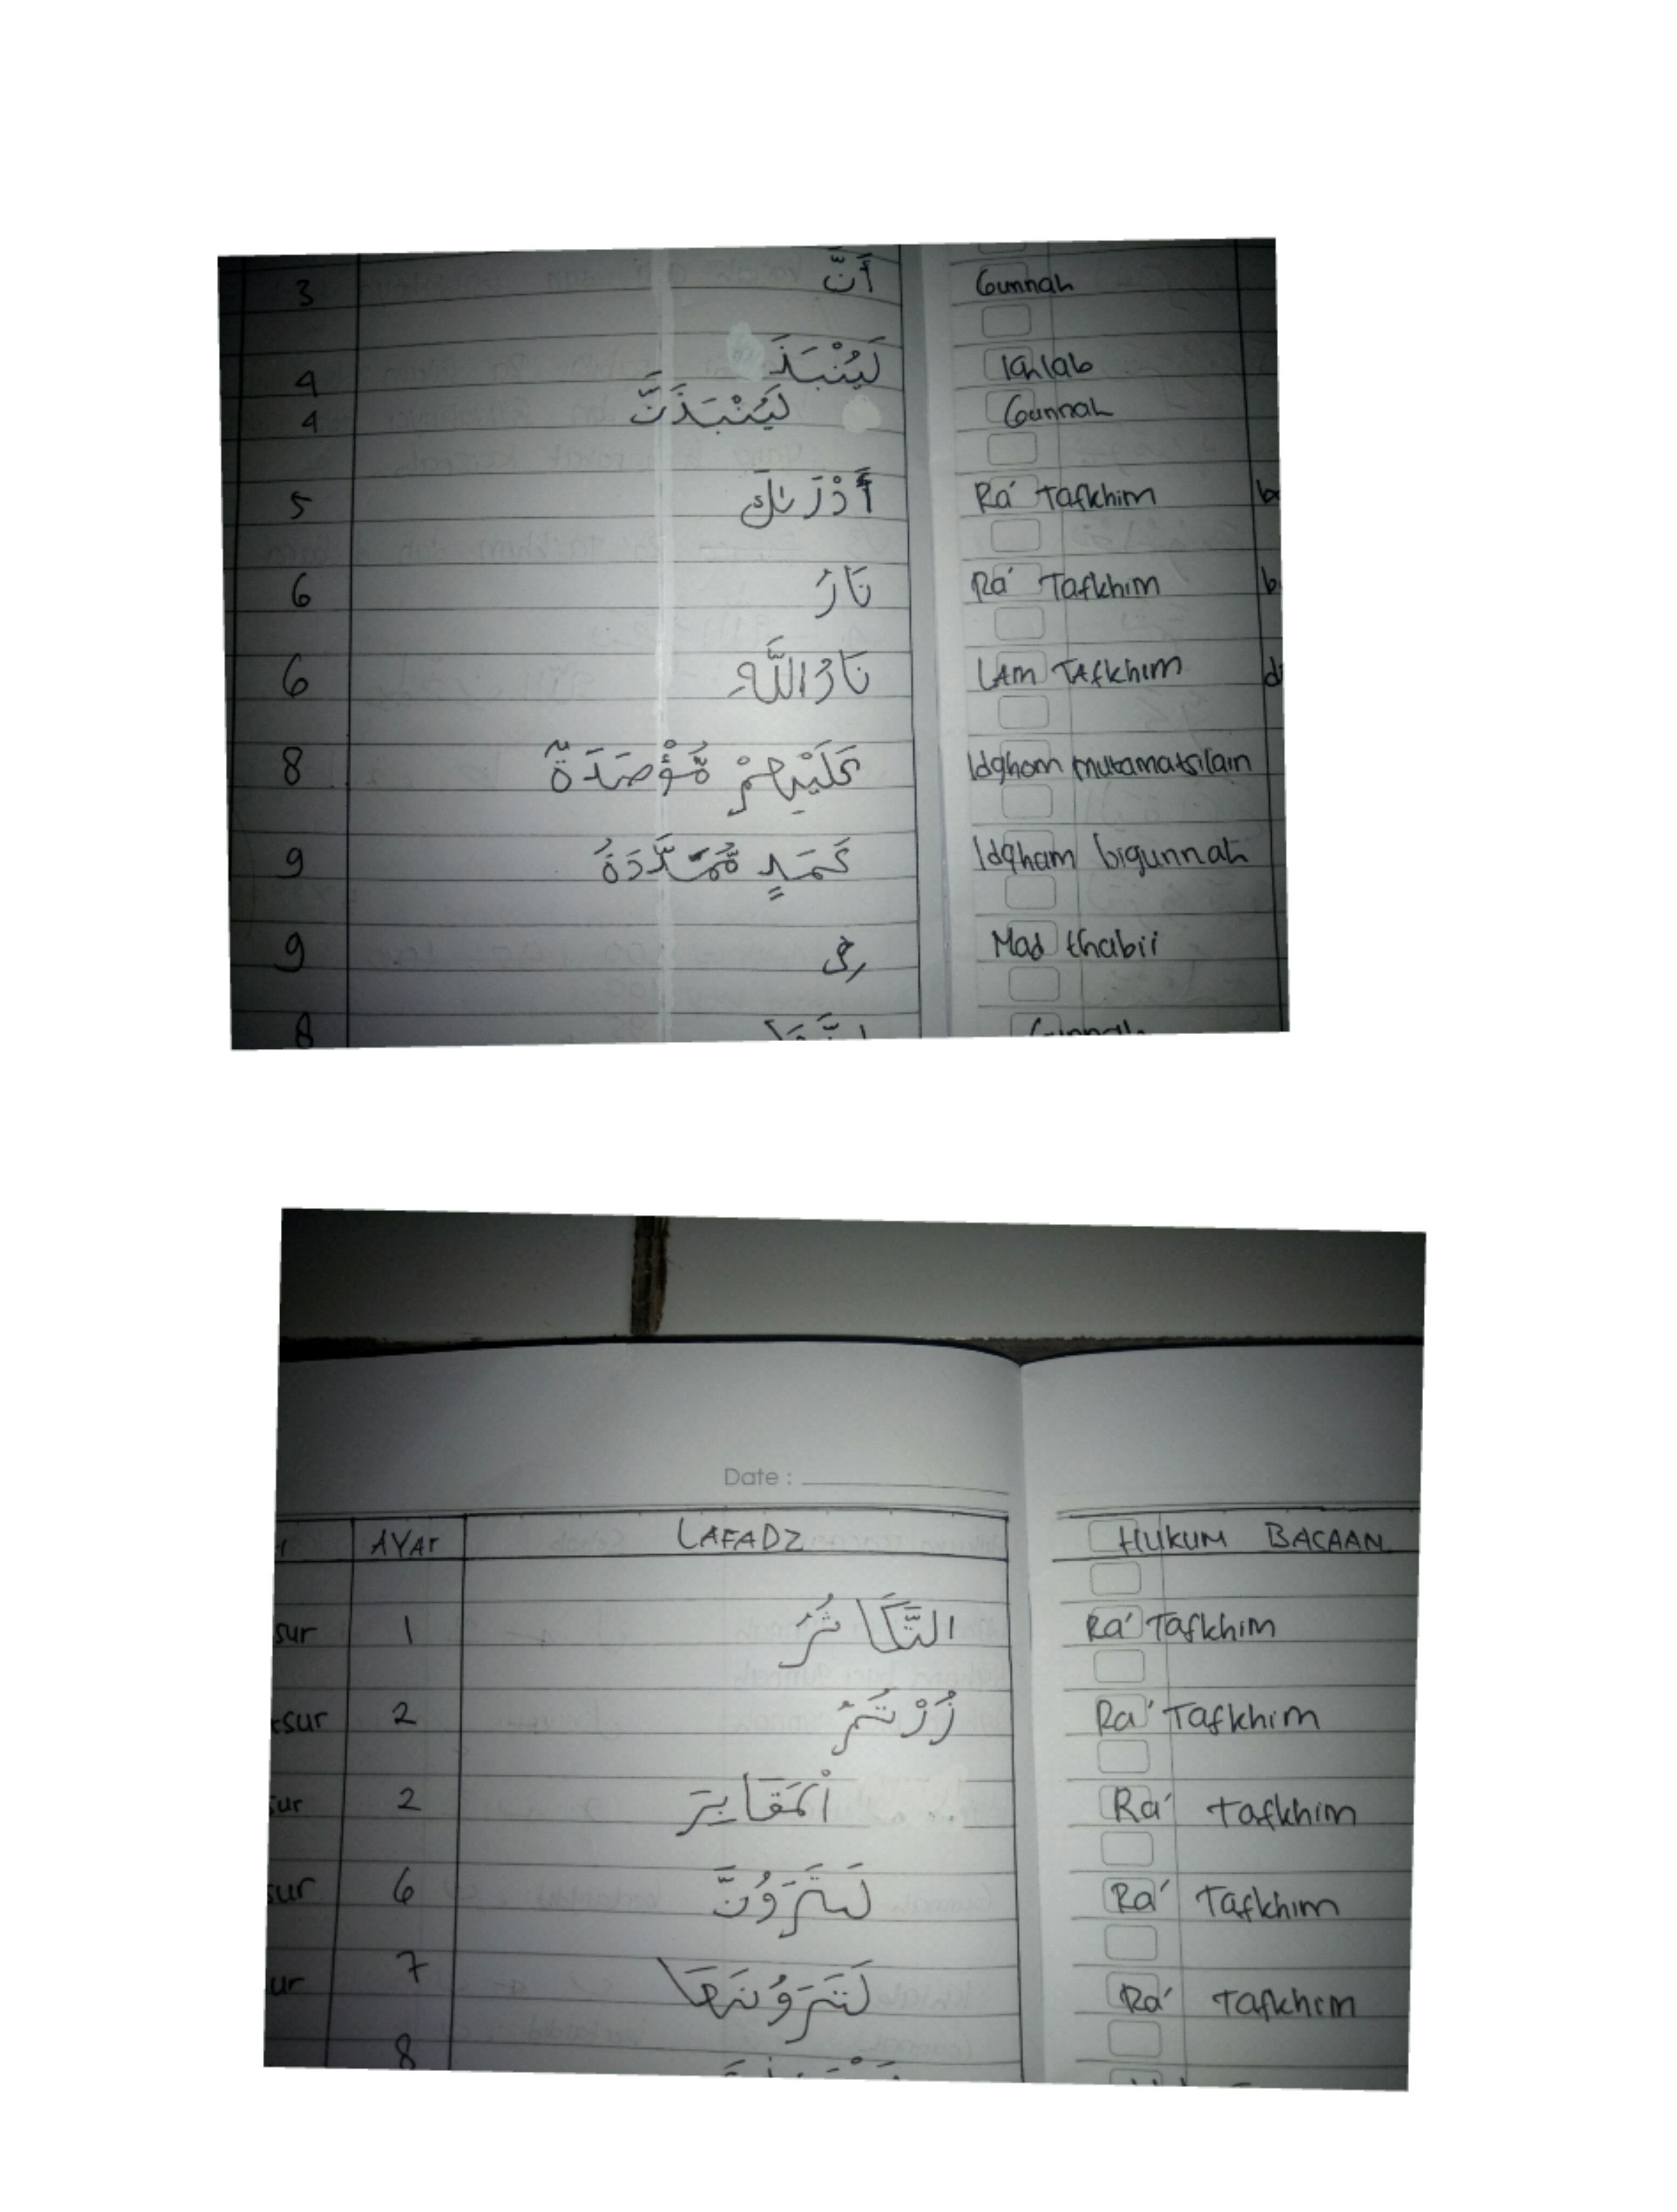 3 أَنَّ Gunnah
4 لَيُنْبَذَ Iqhlab
4 لَيُنْبَذَنَّ Gunnah
5 أَدْرَىٰكَ Ra' Tafkhim
6 نَارُ Ra' Tafkhim
6 نَارُ اللَّهِ LAM TAfkhim
8 عَلَيْهِمْ مُّؤْصَدَةٌ Idghom mutamatsilain
9 عَمَدٍ مُّمَدَّدَةُ Idgham bigunnah
9 فِى Mad thabii
8 Gunnah
Date :
AYAT LAFADZ HUKUM BACAAN
sur 1 التَّكَاثُرُ Ra' Tafkhim
tsur 2 زُرْتُمُ Ra' Tafkhim
sur 2 اْلمَقَابِرَ Ra' tafkhim
sur 6 لَتَرَوُنَّ Ra' Tafkhim
ur 7 لَتَرَوُنَهَا Ra' tafkhim
8